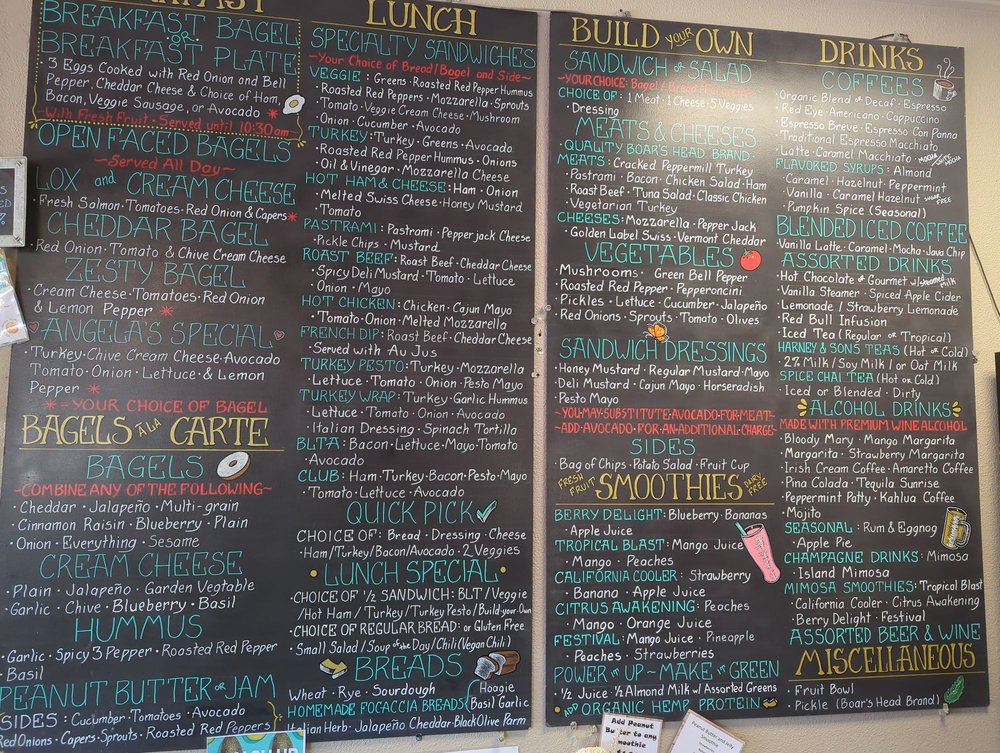 BREAKFAST BAGEL
OR
BREAKFAST PLATE
• 3 Eggs Cooked with Red Onion and Bell
Pepper, Cheddar Cheese & Choice of Ham,
Bacon, Veggie Sausage, or Avocado *
~With Fresh Fruit • Served until 10:30am~
OPEN FACED BAGELS
~Served All Day~
LOX and CREAM CHEESE
• Fresh Salmon • Tomatoes • Red Onion & Capers *
CHEDDAR BAGEL
Red Onion • Tomato & Chive Cream Cheese
ZESTY BAGEL
• Cream Cheese • Tomatoes • Red Onion
& Lemon Pepper *
ANGELA'S SPECIAL
• Turkey • Chive Cream Cheese • Avocado
Tomato • Onion • Lettuce • & Lemon
Pepper *
* = YOUR CHOICE OF BAGEL
BAGELS à la CARTE
BAGELS
~COMBINE ANY OF THE FOLLOWING~
• Cheddar • Jalapeño • Multi-grain
• Cinnamon Raisin • Blueberry • Plain
• Onion • Everything • Sesame
CREAM CHEESE
• Plain • Jalapeño • Garden Vegtable
• Garlic • Chive • Blueberry • Basil
HUMMUS
• Garlic • Spicy 3 Pepper • Roasted Red Pepper
• Basil
PEANUT BUTTER or JAM
SIDES: Cucumber • Tomatoes • Avocado
Red Onions • Capers • Sprouts • Roasted Red Peppers
LUNCH
SPECIALTY SANDWICHES
~Your Choice of Bread/Bagel and Side~
VEGGIE: Greens • Roasted Red Pepper Hummus
• Roasted Red Peppers • Mozzarella • Sprouts
• Tomato • Veggie Cream Cheese • Mushroom
• Onion • Cucumber • Avocado
TURKEY: Turkey • Greens • Avocado
• Roasted Red Pepper Hummus • Onions
• Oil & Vinegar • Mozzarella Cheese
HOT HAM & CHEESE: Ham • Onion
• Melted Swiss Cheese • Honey Mustard
• Tomato
PASTRAMI: Pastrami • Pepper jack Cheese
• Pickle Chips • Mustard
ROAST BEEF: Roast Beef • Cheddar Cheese
• Spicy Deli Mustard • Tomato • Lettuce
• Onion • Mayo
HOT CHICKEN: Chicken • Cajun Mayo
• Tomato • Onion • Melted Mozzarella
FRENCH DIP: Roast Beef • Cheddar Cheese
• Served with Au Jus
TURKEY PESTO: Turkey • Mozzarella
• Lettuce • Tomato • Onion • Pesto Mayo
TURKEY WRAP: Turkey • Garlic Hummus
• Lettuce • Tomato • Onion • Avocado
• Italian Dressing • Spinach Tortilla
BLTA: Bacon • Lettuce • Mayo • Tomato
• Avocado
CLUB: Ham • Turkey • Bacon • Pesto • Mayo
• Tomato • Lettuce • Avocado
QUICK PICK ✓
CHOICE OF: Bread • Dressing • Cheese
• Ham/Turkey/Bacon/Avocado • 2 Veggies
• LUNCH SPECIAL •
• CHOICE OF ½ SANDWICH: BLT / Veggie
/Hot Ham / Turkey / Turkey Pesto / Build-your-Own
• CHOICE OF REGULAR BREAD: or Gluten Free
• Small Salad / Soup of the Day / Chili (Vegan Chili)
BREADS
Wheat • Rye • Sourdough
Hoagie
HOMEMADE FOCACCIA BREADS (Basil Garlic
Italian Herb • Jalapeño Cheddar • Black Olive Parm
BUILD your OWN
SANDWICH or SALAD
~YOUR CHOICE: Bagel / Bread /
CHOICE OF: 1 Meat • 1 Cheese • 5 Veggies
• Dressing
MEATS & CHEESES
QUALITY BOAR'S HEAD BRAND
MEATS: Cracked Peppermill Turkey
• Pastrami • Bacon • Chicken Salad • Ham
• Roast Beef • Tuna Salad • Classic Chicken
• Vegetarian Turkey
CHEESES: Mozzarella • Pepper Jack
• Golden Label Swiss • Vermont Cheddar
VEGETABLES
• Mushrooms • Green Bell Pepper
• Roasted Red Pepper • Pepperoncini
• Pickles • Lettuce • Cucumber • Jalapeño
• Red Onions • Sprouts • Tomato • Olives
SANDWICH DRESSINGS
• Honey Mustard • Regular Mustard • Mayo
• Deli Mustard • Cajun Mayo • Horseradish
• Pesto Mayo
~YOU MAY SUBSTITUTE AVOCADO FOR MEAT~
~ADD AVOCADO FOR AN ADDITIONAL CHARGE~
SIDES
• Bag of Chips • Potato Salad • Fruit Cup
FRESH FRUIT SMOOTHIES DAIRY FREE
BERRY DELIGHT: Blueberry • Bananas
• Apple Juice
TROPICAL BLAST: Mango Juice
• Mango • Peaches
CALIFORNIA COOLER: Strawberry
• Banana • Apple Juice
CITRUS AWAKENING: Peaches
• Mango • Orange Juice
FESTIVAL: Mango Juice • Pineapple
• Peaches • Strawberries
POWER it UP ~ MAKE it GREEN
• ½ Juice • ½ Almond Milk w/ Assorted Greens
• ADD ORGANIC HEMP PROTEIN •
DRINKS
COFFEES
Organic Blend or Decaf • Espresso
Red Eye • Americano • Cappuccino
Espresso Breve • Espresso Con Panna
Traditional Espresso Macchiato
Latte • Caramel Macchiato • MOCHA/WHITE MOCHA
FLAVORED SYRUPS: Almond
• Caramel • Hazelnut • Peppermint
• Vanilla • Caramel Hazelnut SUGAR FREE
• Pumpkin Spice (Seasonal)
BLENDED ICED COFFEE
Vanilla Latte • Caramel • Mocha • Java Chip
ASSORTED DRINKS
Hot Chocolate or Gourmet w/ steamed milk
Vanilla Steamer • Spiced Apple Cider
Lemonade / Strawberry Lemonade
Red Bull Infusion
Iced Tea (Regular or Tropical)
HARNEY & SON'S TEAS (Hot or Cold)
2% Milk / Soy Milk / or Oat Milk
SPICE CHAI TEA (Hot or Cold)
Iced or Blended • Dirty
ALCOHOL DRINKS
MADE WITH PREMIUM WINE ALCOHOL
• Bloody Mary • Mango Margarita
• Margarita • Strawberry Margarita
• Irish Cream Coffee • Amaretto Coffee
• Pina Colada • Tequila Sunrise
• Peppermint Patty • Kahlua Coffee
• Mojito
SEASONAL: • Rum & Eggnog
• Apple Pie
CHAMPAGNE DRINKS: Mimosa
• Island Mimosa
MIMOSA SMOOTHIES: Tropical Blast
• California Cooler • Citrus Awakening
• Berry Delight • Festival
ASSORTED BEER & WINE
MISCELLANEOUS
• Fruit Bowl
• Pickle (Boar's Head Brand)
Add Peanut
Butter to any
smoothie
Peanut Butter and Jelly
Smoothie